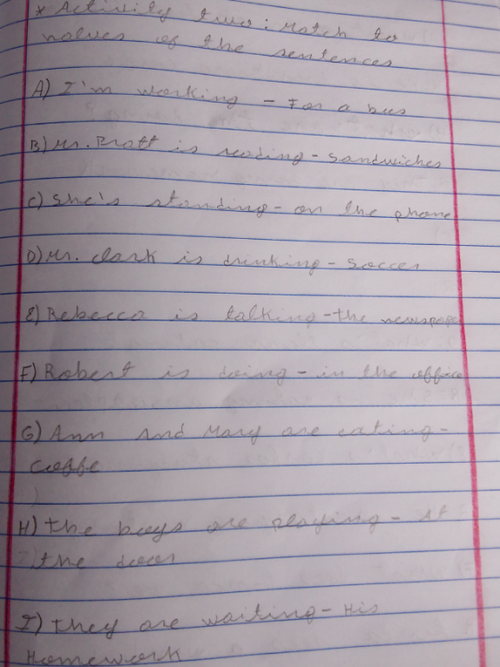 * Activity two: Match to
nolves of the sentences
A) I'm working - For a bus
B) Mr. Bratt is reading - sandwiches
C) She's standing - on the phone
D) Mr. Clark is drinking - soccer
E) Rebecca is talking - the newspaper
F) Robert is doing - in the office
G) Ann and Mary are eating -
coffe
H) the boys are playing - at
the door
I) they are waiting - His
Homework